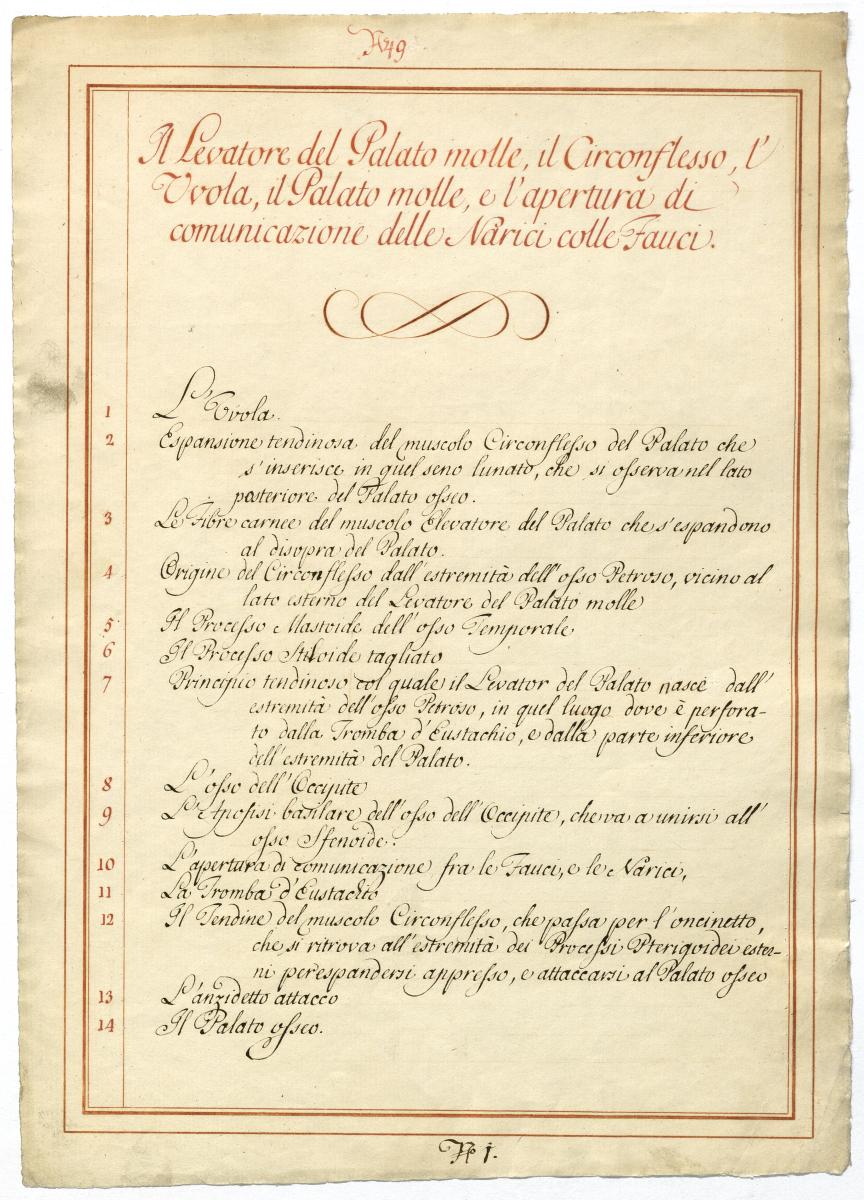 N.49
Il Levatore del Palato molle, il Circonflesso, l'
Uvola, il Palato molle, e l'apertura di
comunicazione delle Narici colle Fauci.
1 L'Uvola.
2 Espansione tendinosa del muscolo Circonflesso del Palato che
s'inserisce in quel seno lunato, che si osserva nel lato
posteriore del Palato osseo.
3 Le Fibre carnee del muscolo Elevatore del Palato che s'espandono
al disopra del Palato.
4 Origine del Circonflesso dall'estremità dell'osso Petroso, vicino al
lato esterno del Levatore del Palato molle
5 Il Processo Mastoide dell'osso Temporale
6 Il Processo Stiloide tagliato
7 Principio tendinoso col quale il Levator del Palato nasce dall'
estremità dell'osso Petroso, in quel luogo dove è perfora-
to dalla Tromba d'Eustachio, e dalla parte inferiore
dell'estremità del Palato.
8 L'osso dell'Occipite
9 L'Apofisi basilare dell'osso dell'Occipite, che va a unirsi all'
osso Sfenoide.
10 L'apertura di comunicazione fra le Fauci, e le Narici,
11 La Tromba d'Eustachio
12 Il Tendine del muscolo Circonflesso, che passa per l'oncinetto,
che si ritrova all'estremità dei Processi Pterigoidei ester-
ni per espandersi appresso, e attaccarsi al Palato osseo
13 L'anzidetto attacco
14 Il Palato osseo.
N. 1.